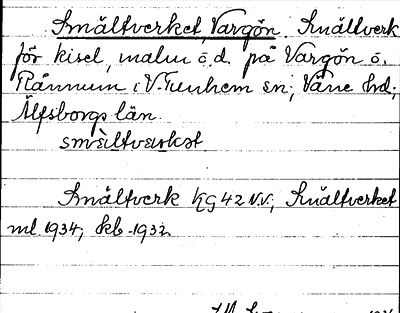 Smältverket, Vargön. Smältverk
för kisel, malm o.d. på Vargön o.
Rånnum i V-Tunhem sn; Väne hd;
Älfsborgs län.
smältvärkət
Smältverk KG 42 N.V.; Smältverket
ml 1934; kb 1932